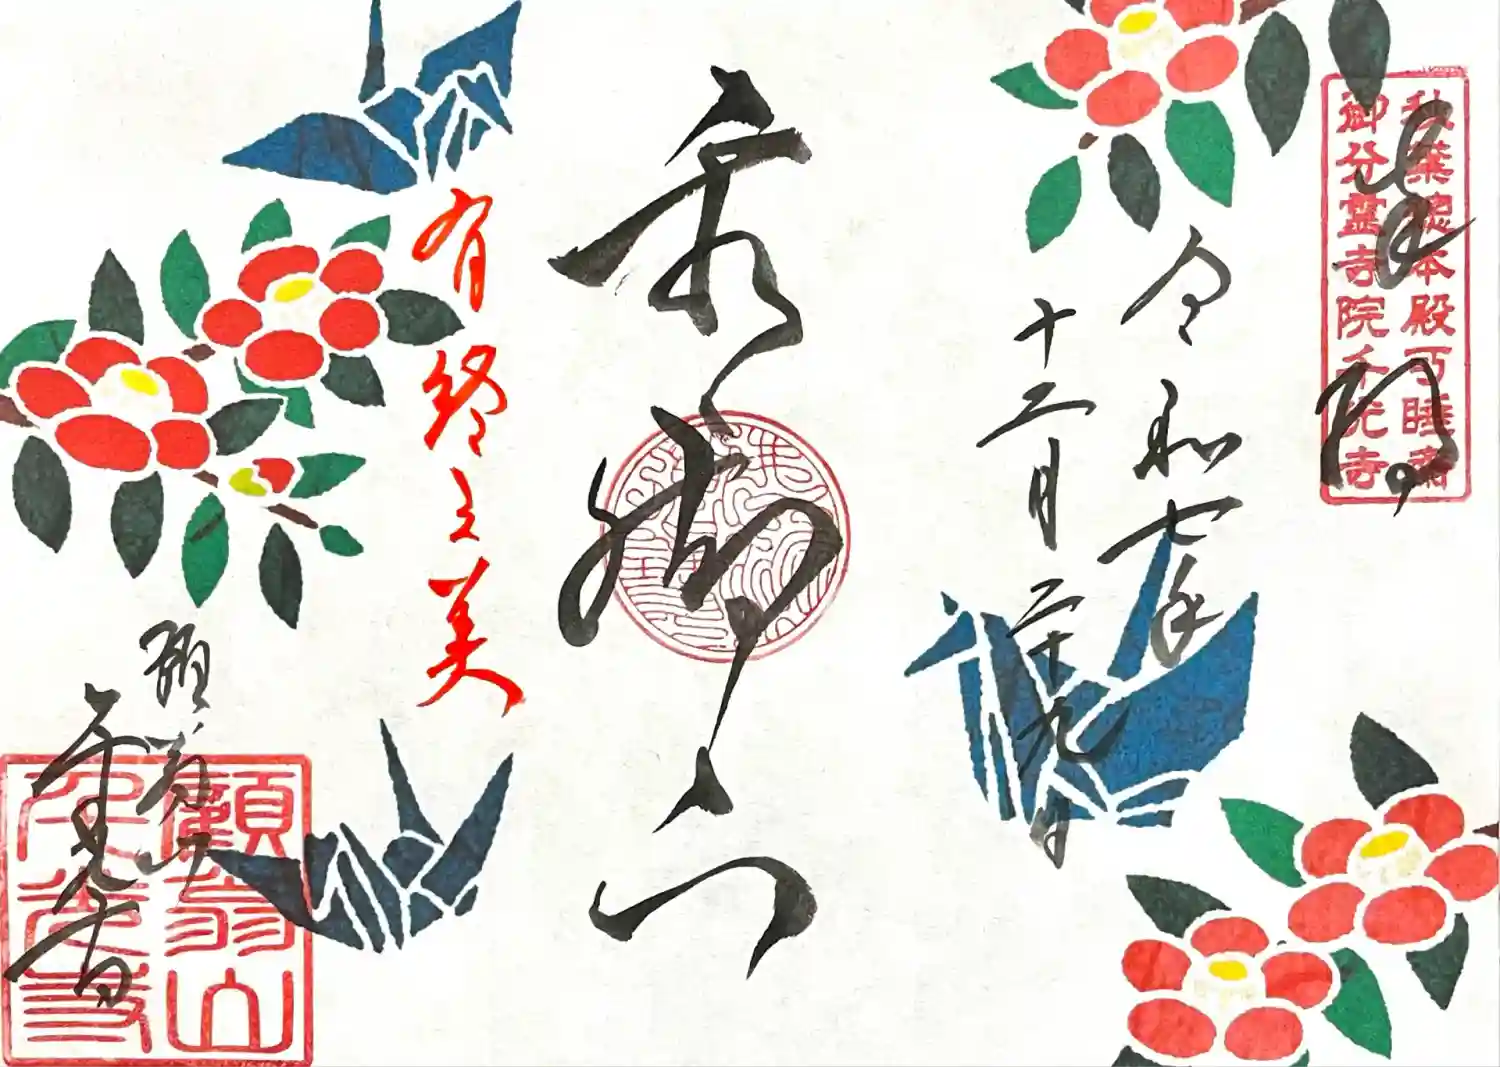 奉拝
秋葉總本殿可睡齋
御分霊寺院千光寺
令和七年
十二月二十九日
有終之美
願翁山
千光寺
願翁山
千光寺